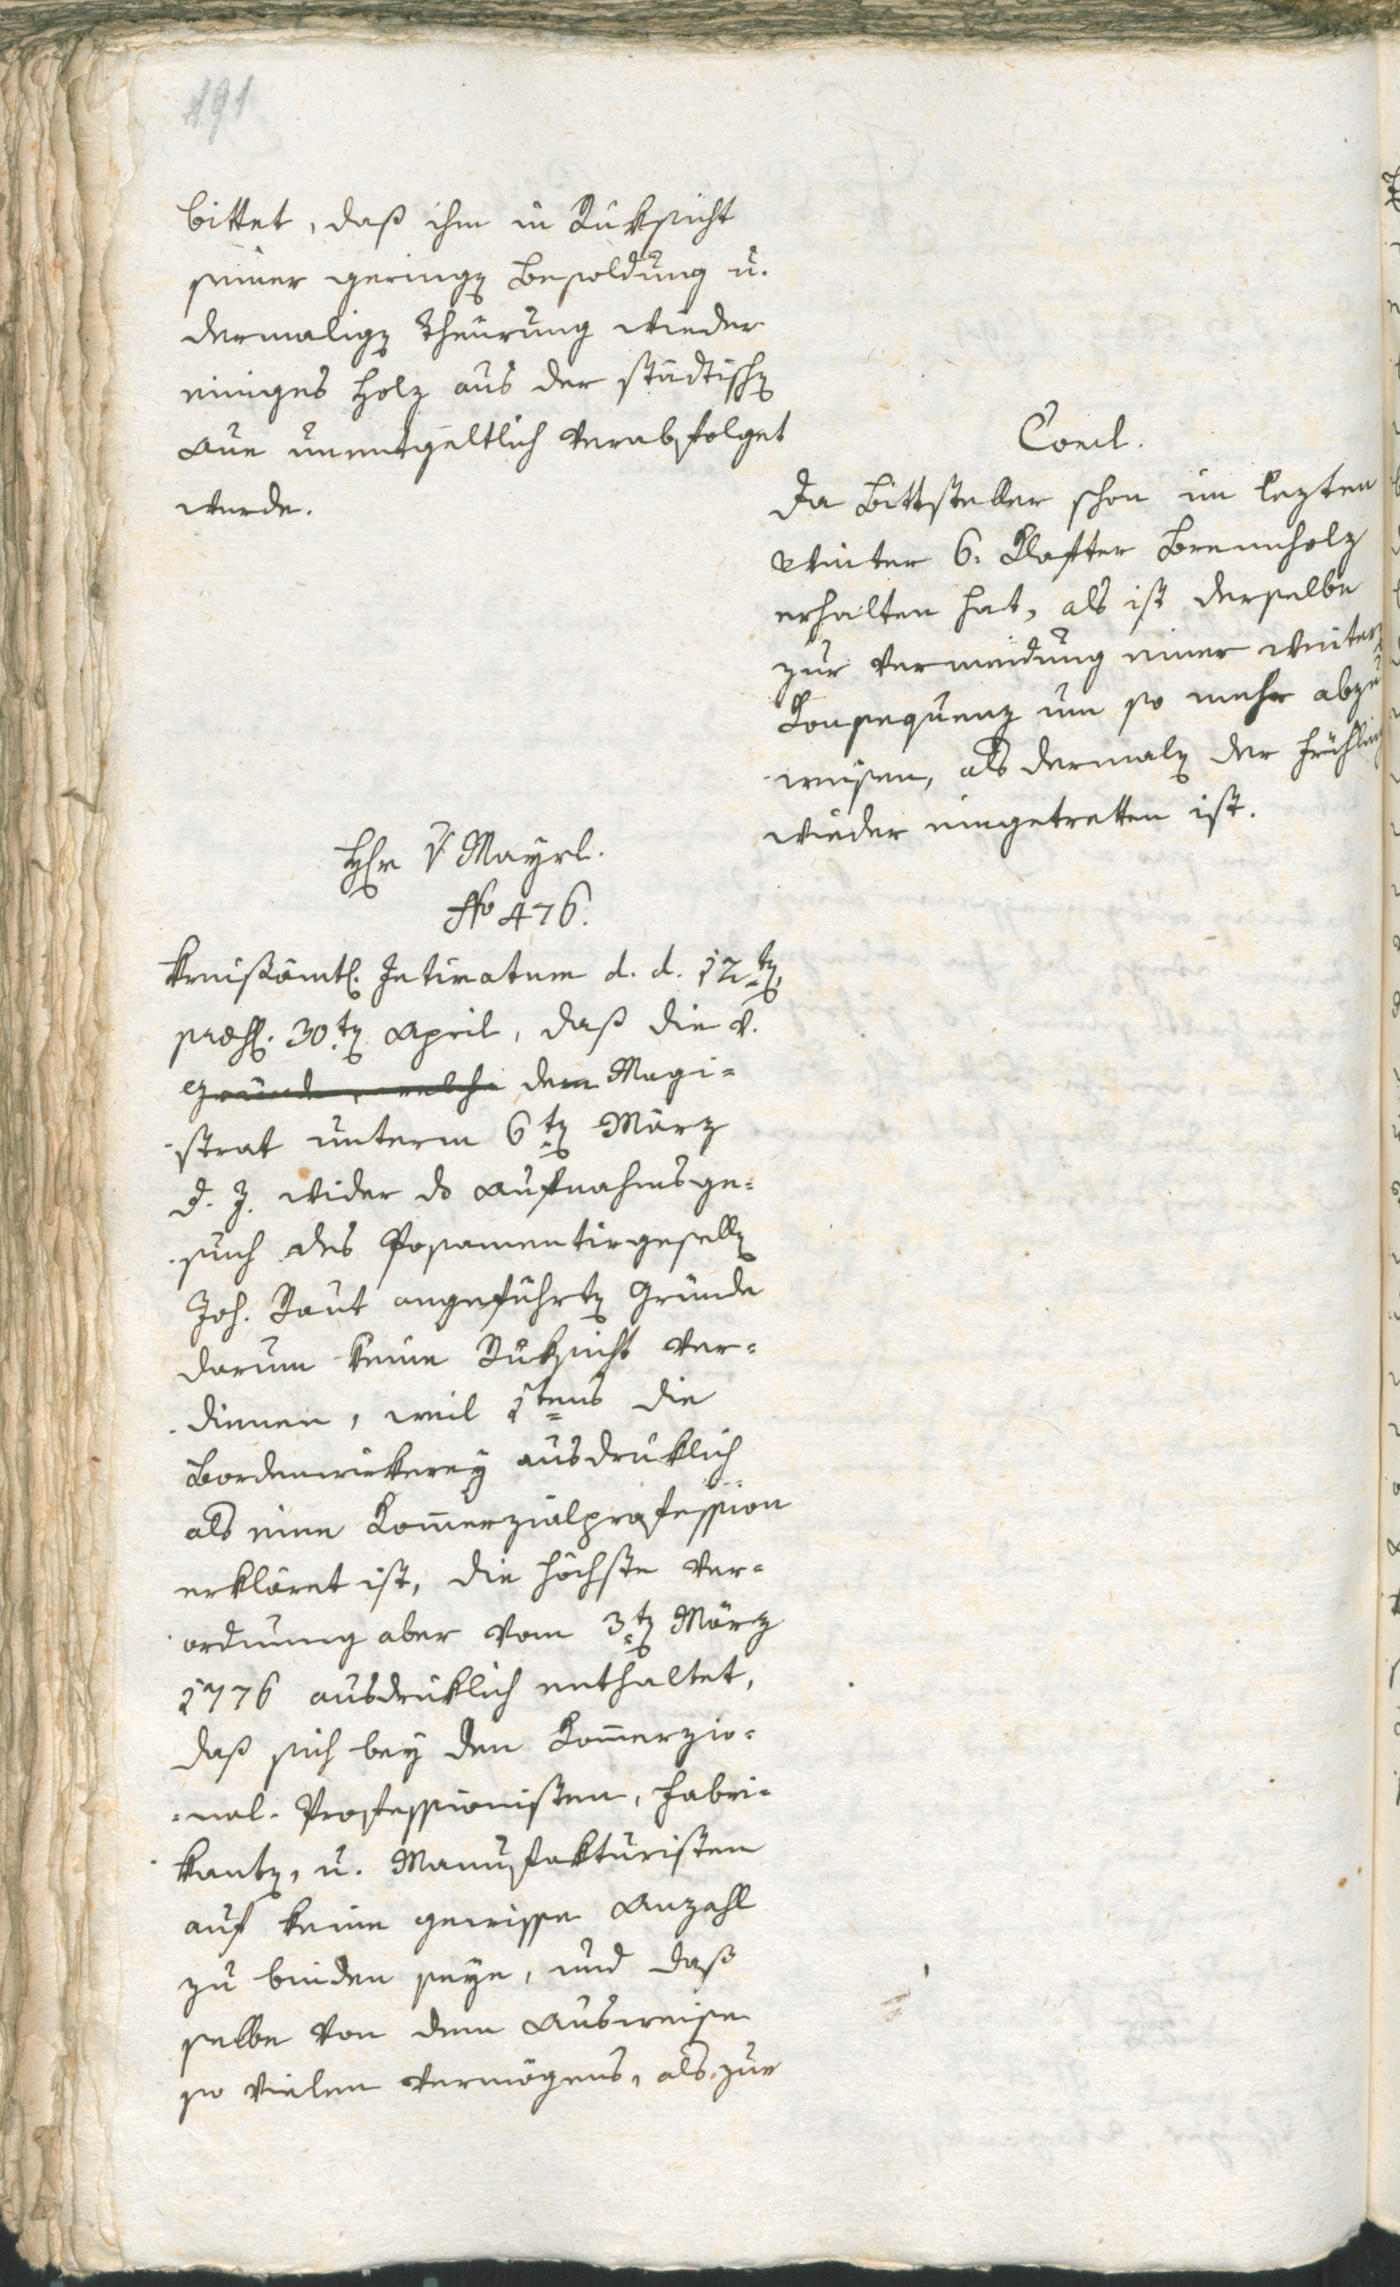 191
bittet, daß ihm in Rüksicht
seiner geringen Besoldung u.
dermaligen Theurung wieder
einiges Holz aus der städtischen
Aue unentgeltlich verabfolget
werde.
Concl.
Da Bittsteller schon im lezten
Winter 6. Klafter Brennholz
erhalten hat, als ist derselbe
zur Vermeidung einer weitern
Konsequenz um so mehr abzu
weisen, als dermalen der Frühling
wieder eingetretten ist.
Hr v Mayrl.
No 476.
Kreisämtl. Intimatum d. d. 12ten
praes. 30ten April, daß die v.
Gründe, welche dem Magi=
strat unterm 6ten März
d. J. wider das Aufnahmsge=
such des Posamentirgesellen
Joh. Raut angeführten Gründe
darum keine Rüksicht ver=
dienen, weil 1tens die
Bordenwirkerey ausdrüklich
als eine Kommerzialprofession
erkläret ist, die höchste Ver=
ordnung aber vom 3ten März
1776 ausdrüklich enthaltet,
daß sich bey den Kommerzio=
=nal-Professionisten, Fabri=
kanten, u. Manufakturisten
auf keine gewisse Anzahl
zu binden seye, und daß
selbe von dem Ausweise
so vielen Vermögens, als zur